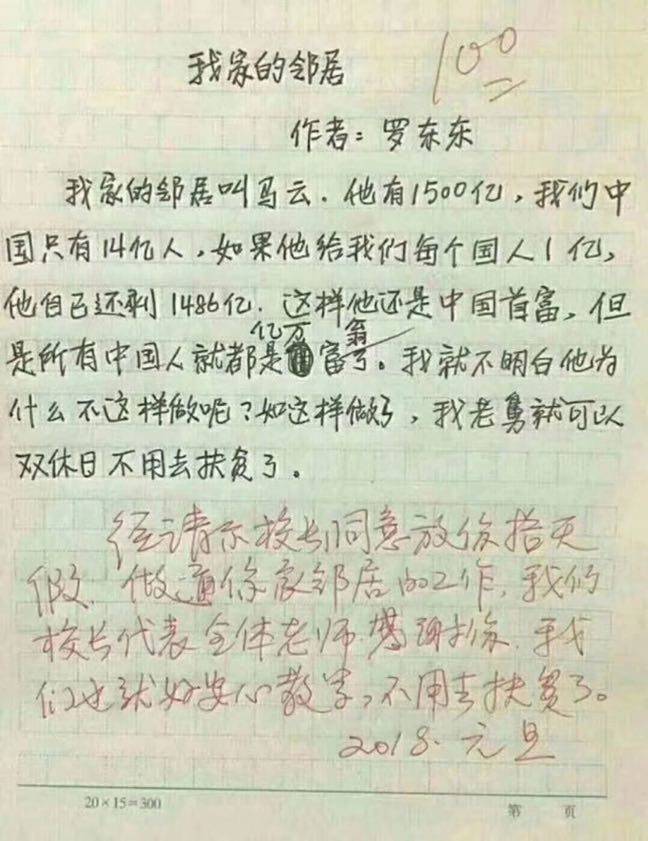 我家的邻居
100
作者：罗东东
我家的邻居叫马云．他有1500亿，我们中
国只有14亿人，如果他给我们每个国人1亿，
他自己还剩1486亿．这样他还是中国首富，但
亿万 翁
是所有中国人就都是富了。我就不明白他为
什么不这样做呢？如这样做了，我老舅就可以
双休日不用去扶贫了。
经请示校长同意放你拾天
假．做通你家邻居的工作，我们
校长代表全体老师感谢你．我
们也就好安心教学，不用去扶贫了。
2018．元旦
20×15=300
第 页